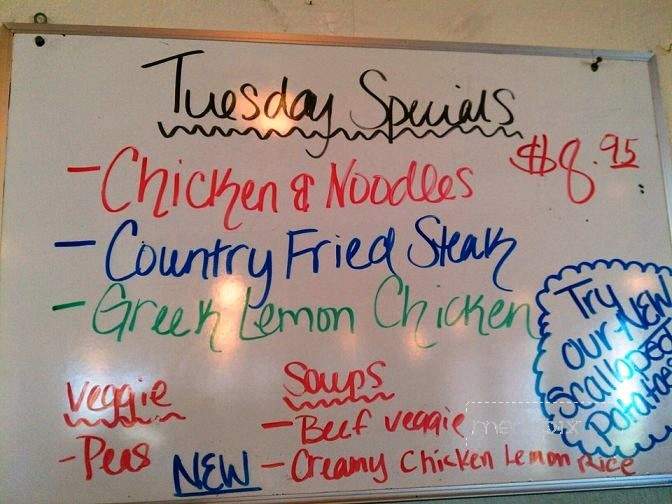 Tuesday Specials
$8.95
- Chicken & Noodles
- Country Fried Steak
- Greek Lemon Chicken
Try
our NEW
Scalloped
Potatoes
Veggie
- Peas
Soups
- Beef veggie
NEW - Creamy Chicken Lemon Rice